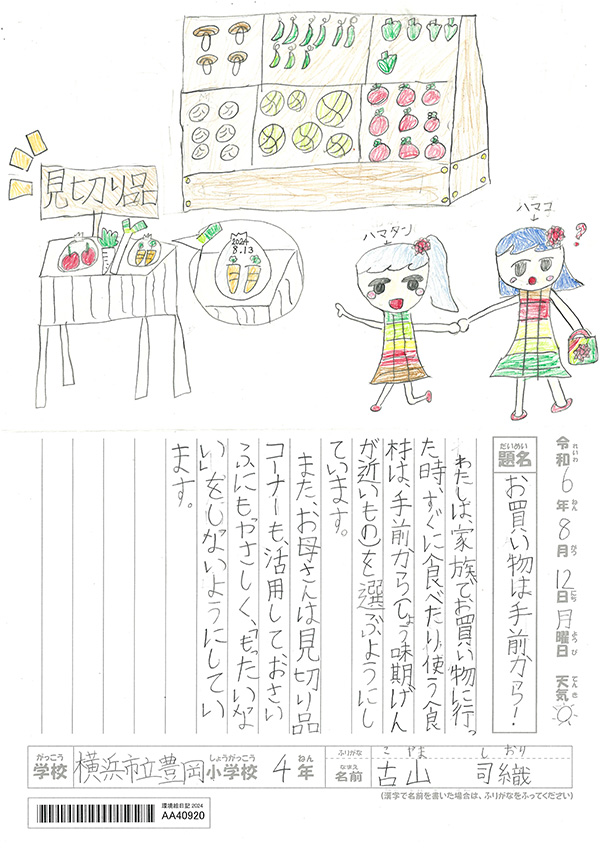 見切り品
2024
8.13
ハマタン
ハマコ
?
令和6年8月12日月曜日 天気
れいわ ねん がつ にち ようび てんき
だいめい
題名
お買い物は手前から!
わたしは、家族でお買い物に行っ
た時、すぐに食べたり、使う食
材は、手前から(しょう味期げん
が近いもの)を選ぶようにし
ています。
また、お母さんは見切り品
コーナーも、活用しておさい
ふにもやさしく、「もったいな
い」をしないようにしてい
ます。
がっこう しょうがっこう ねん
学校 横浜市立豊岡小学校 4年
ふりがな こやま しおり
なまえ
名前 古山 司織
(漢字で名前を書いた場合は、ふりがなをふってください)
環境絵日記 2024
AA40920